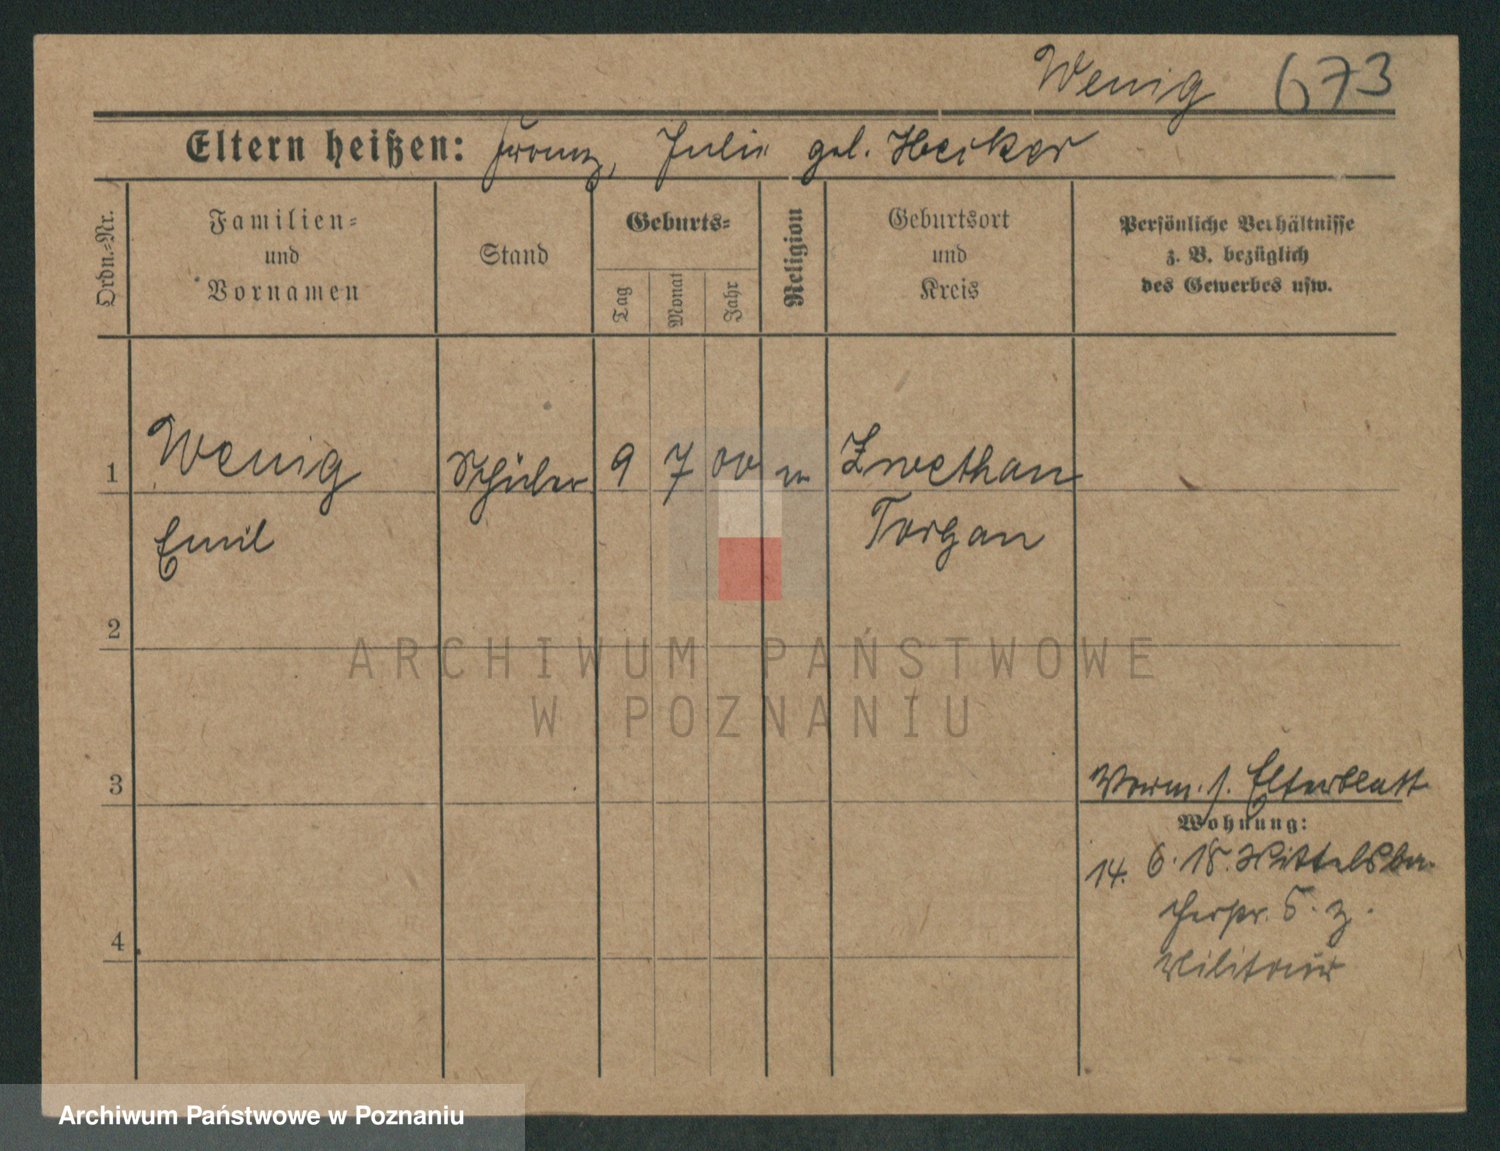 Wenig 673
Eltern heißen: Franz, Julie geb. Hecker
Ordn.=Nr.
Familien=
und
Vornamen
Stand
Geburts=
Tag
Monat
Jahr
Religion
Geburtsort
und
Kreis
Persönliche Verhältnisse
z. B. bezüglich
des Gewerbes usw.
1 Wenig Schüler 9 7 00 Zwethau
Emil Torgau
2
3
Verm. s. Elterblatt
Wohnung:
14. 6. 18. Wittelsba-
cherstr. 5. z.
4
Militär
ARCHIWUM PAŃSTWOWE
W POZNANIU
Archiwum Państwowe w Poznaniu